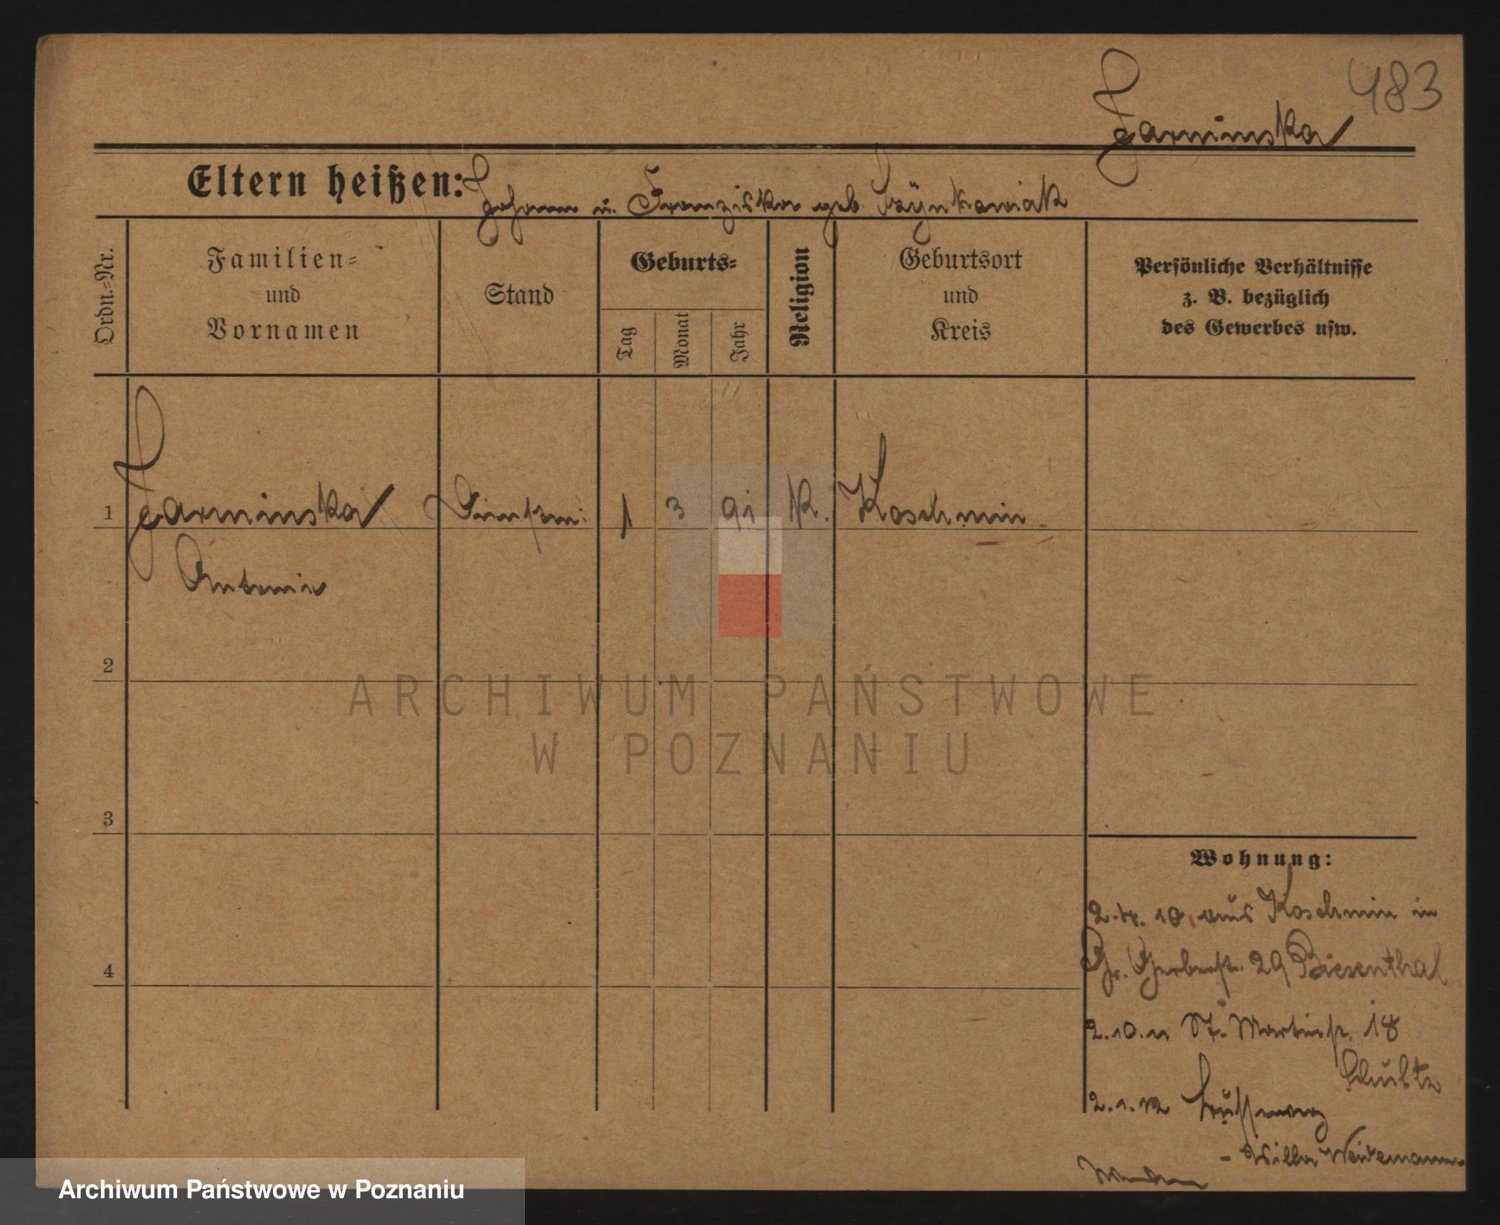 483
Jarminska
Eltern heißen: Johann u. Franziska geb.
Ordn.=Nr.
Familien=
und
Vornamen
Stand
Geburts=
Tag
Monat
Jahr
Religion
Geburtsort
und
Kreis
Persönliche Verhältnisse
z. B. bezüglich
des Gewerbes usw.
1 Jarminska 1 3 91 K. Koschmin
Antonie
2
3
4
ARCHIWUM PAŃSTWOWE
W POZNANIU
Wohnung:
2.4.10, aus Koschmin in
Gr. Gerberstr. 29 Biesenthal
2.10.11 St. Martinstr. 18
Schultz
2.1.12
- Villa Weidemann
Archiwum Państwowe w Poznaniu